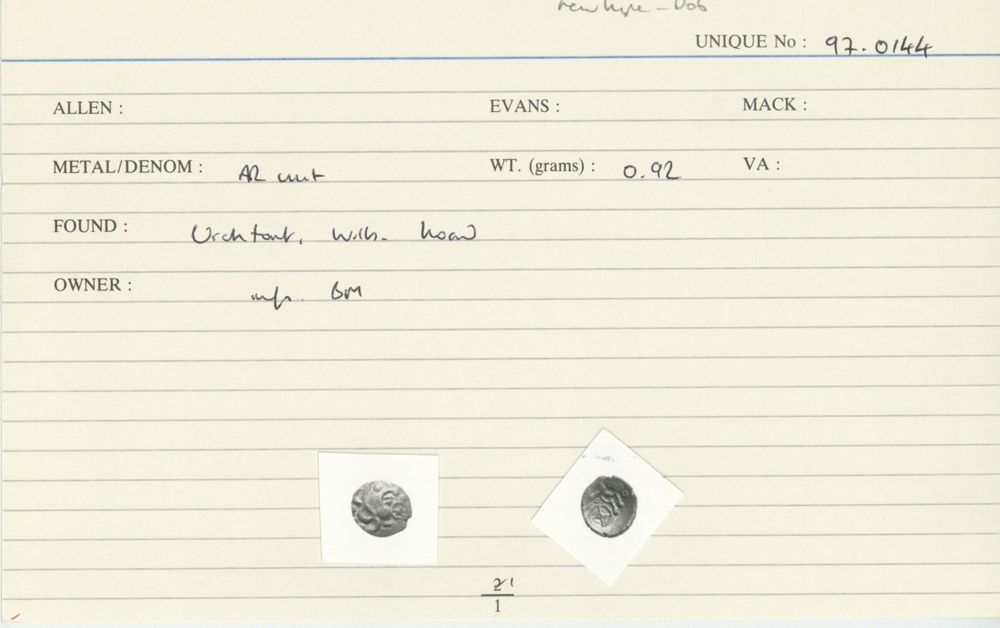 New type - Dob
UNIQUE No : 97.0144
ALLEN : EVANS : MACK :
METAL/DENOM : AR unit WT. (grams) : 0.92 VA :
FOUND : Urchfont, Wilts. hoard
OWNER : inf. BM
1
1